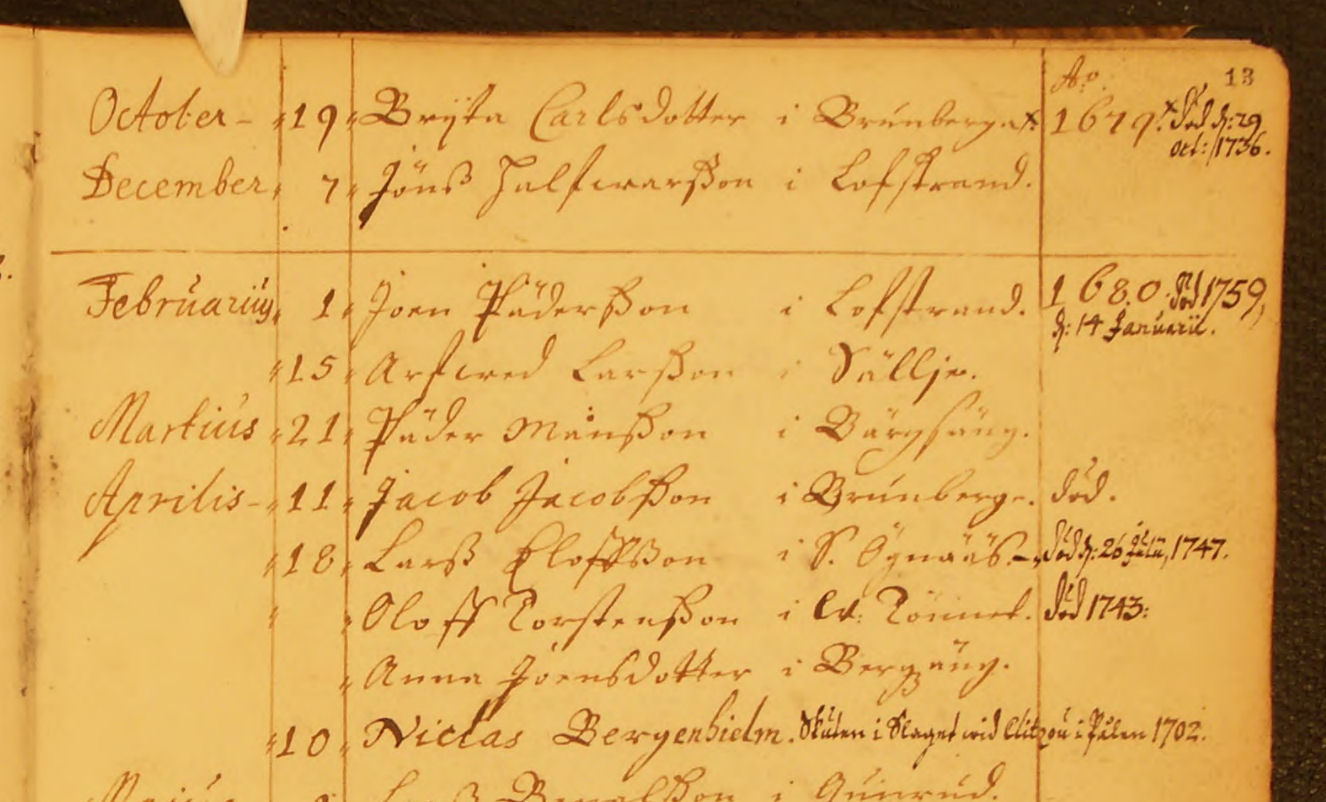 Aº. 13
October - 19 Brijta Carlsdotter i Brúnberga x. 1679. x död d: 29
oct: 1736.
December 7 Jönß Halfwarßon i Lofstrand.
Februarius 1 Joen Päderßon i Lofstrand. 1680. död 1759,
d: 14 Januarii.
15 Arfwed Larßon i Sällje.
Martius 21 Päder Månßon i Bärgsäng.
Aprilis - 11 Jacob Jacobßon i Brúnberge. död.
18 Larß Eloffßon i S. Ögnääs. - död d: 26 Julii, 1747.
Oloff Torstenßon i W. Tönnet. död 1743:
Anna Joensdotter i Bergäng.
10 Niclas Bergenhielm. Skuten i Slaget wid Clitzou i Pålen 1702.
Majus i